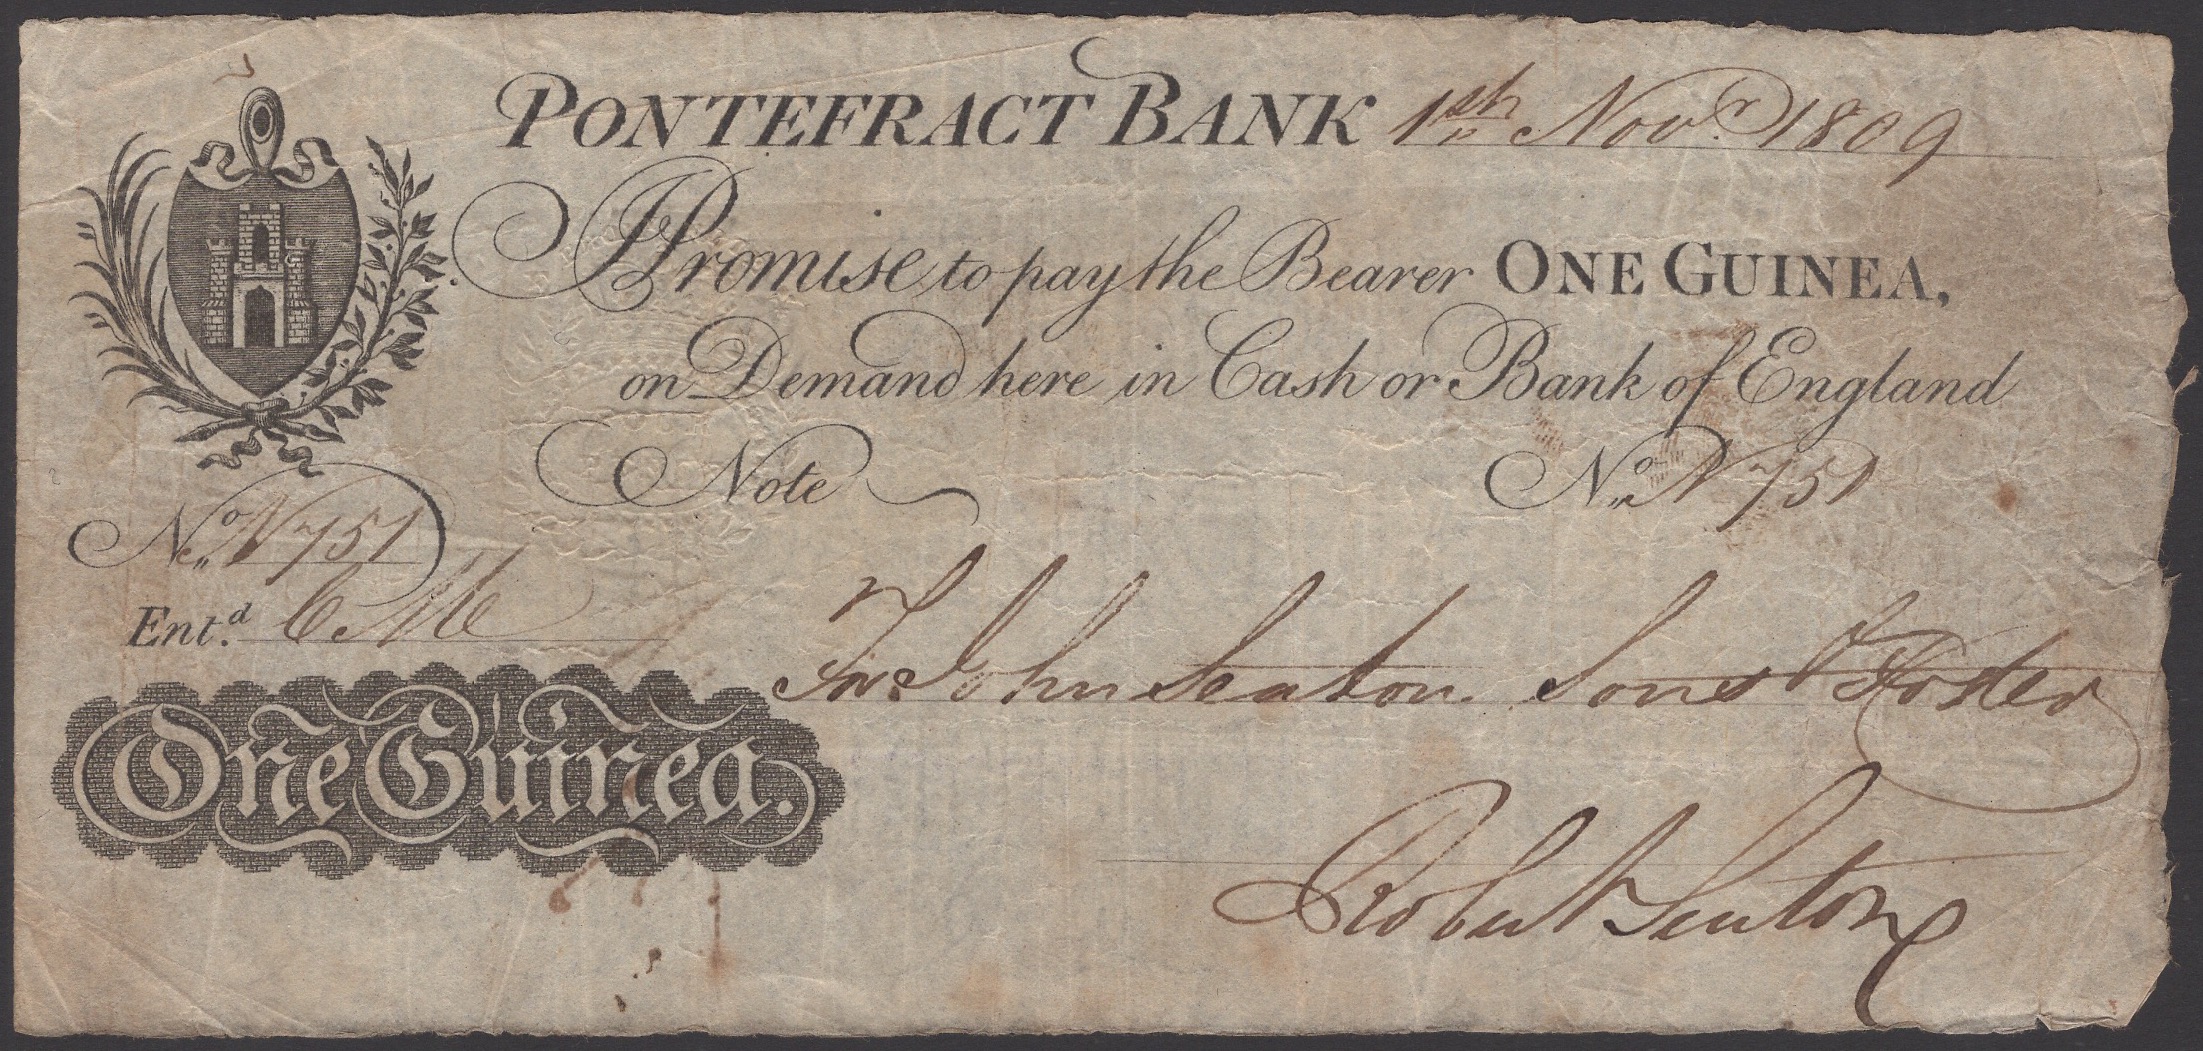 PONTEFRACT BANK 1st Novr. 1809
I Promise to pay the Bearer ONE GUINEA,
on Demand here in Cash or Bank of England
Note No. N 751
No. N 751
Entd. CM
For John Seaton Sons & Foster
One Guinea.
Robert Seaton